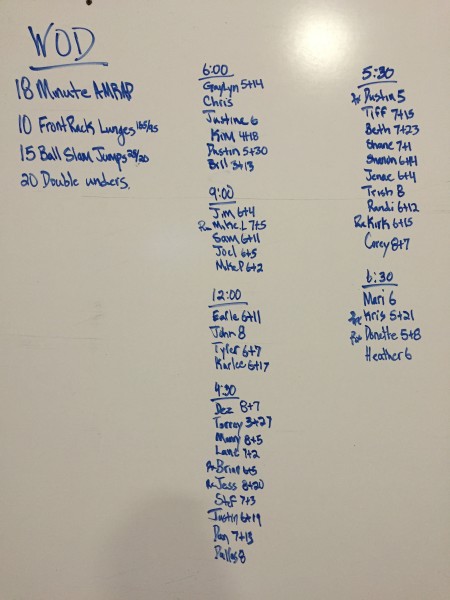 WOD
18 Minute AMRAP
10 Front Rack Lunges
15 Ball Slam Jumps
20 Double unders.
6:00
5+14
Chris
Justine 6
Kim 4+18
Dustin 5+30
Bill 3+13
9:00
Jim 6+4
Mike.L 7+5
Sam 6+11
Joel 6+5
Mike.P 6+2
12:00
Earle 6+11
John 8
Tyler 6+7
Karlee 6+17
4:30
Dez 8+7
Torrey 3+27
Manny 8+5
Lane 7+2
Rx Brian 6+5
Rx Jess 8+20
Stef 7+3
Justin 6+19
Dan 7+13
Dallas 8
5:30
Dustin 5
Tiff 7+15
Beth 7+23
Shane 7+1
Sharon 6+14
Jenae 6+4
Trish 8
Randi 6+12
Rx Kirk 6+15
Corey 8+7
6:30
Mari 6
Kris 5+21
Donette 5+8
Heather 6